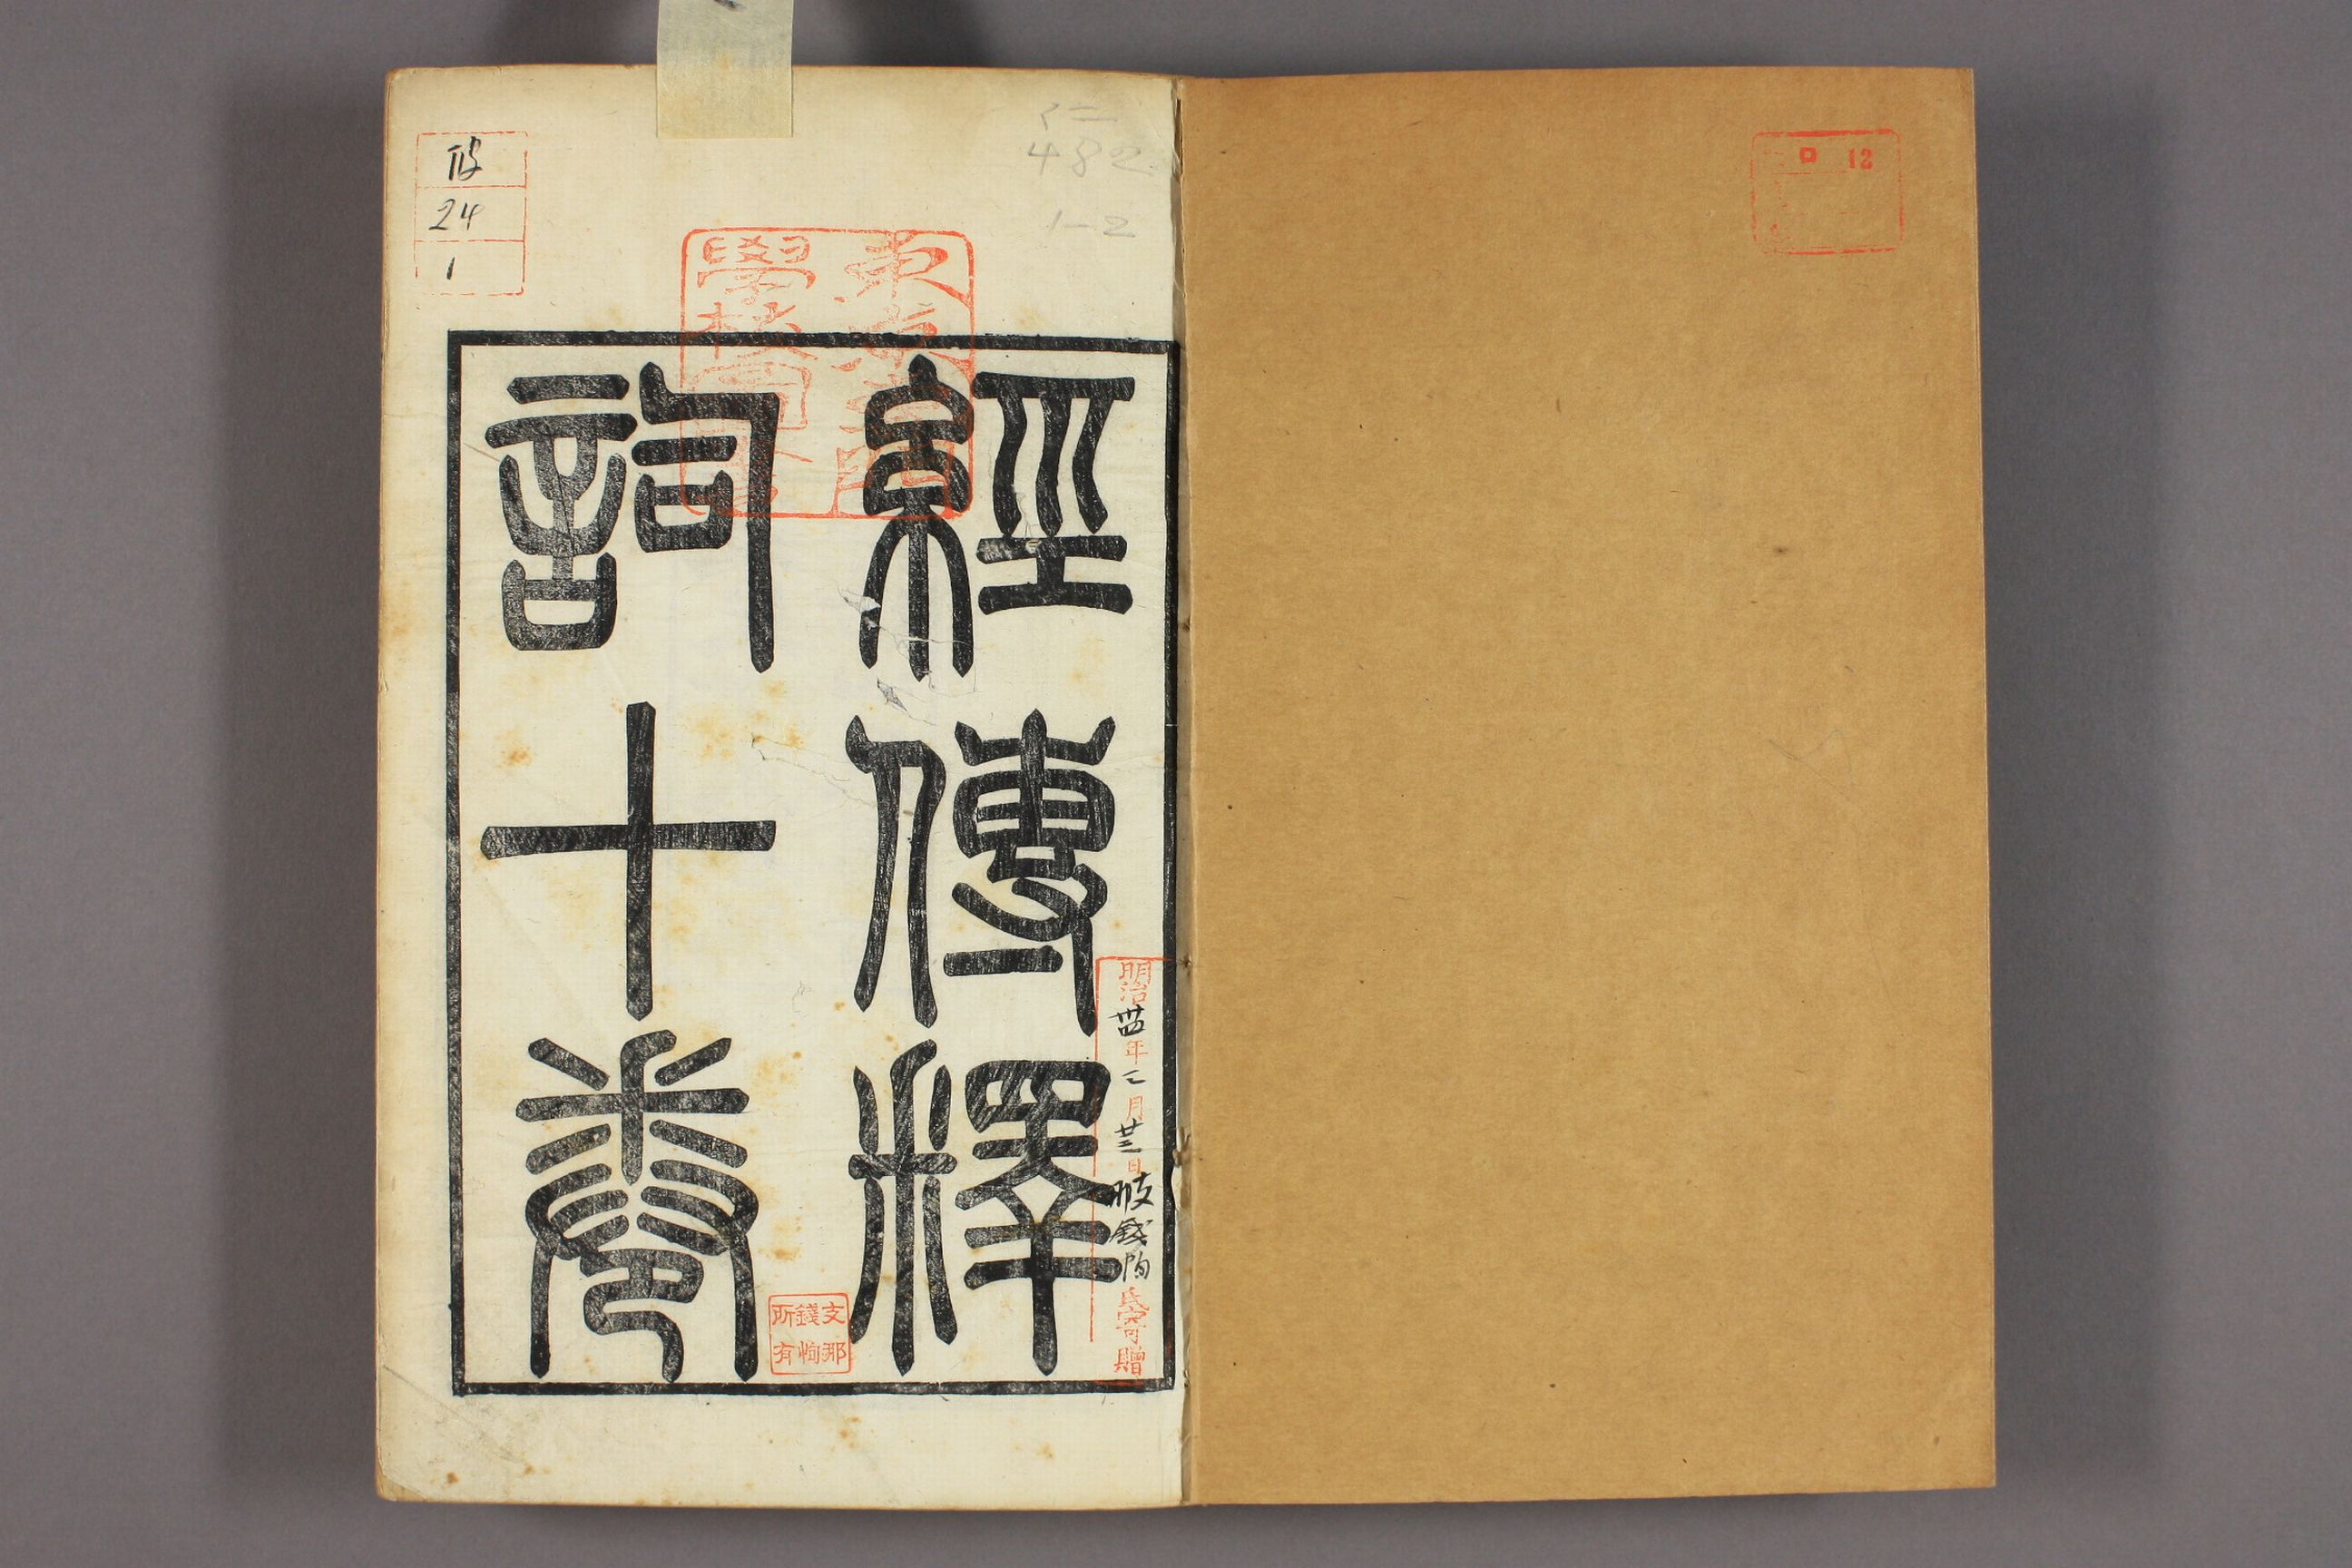 經傳釋
詞十卷
東京美術
學校圖書
明治卅四年二月廿三日
錢恂氏寄贈
支那
錢恂
所有
24
1
482
1-2
ロ 12